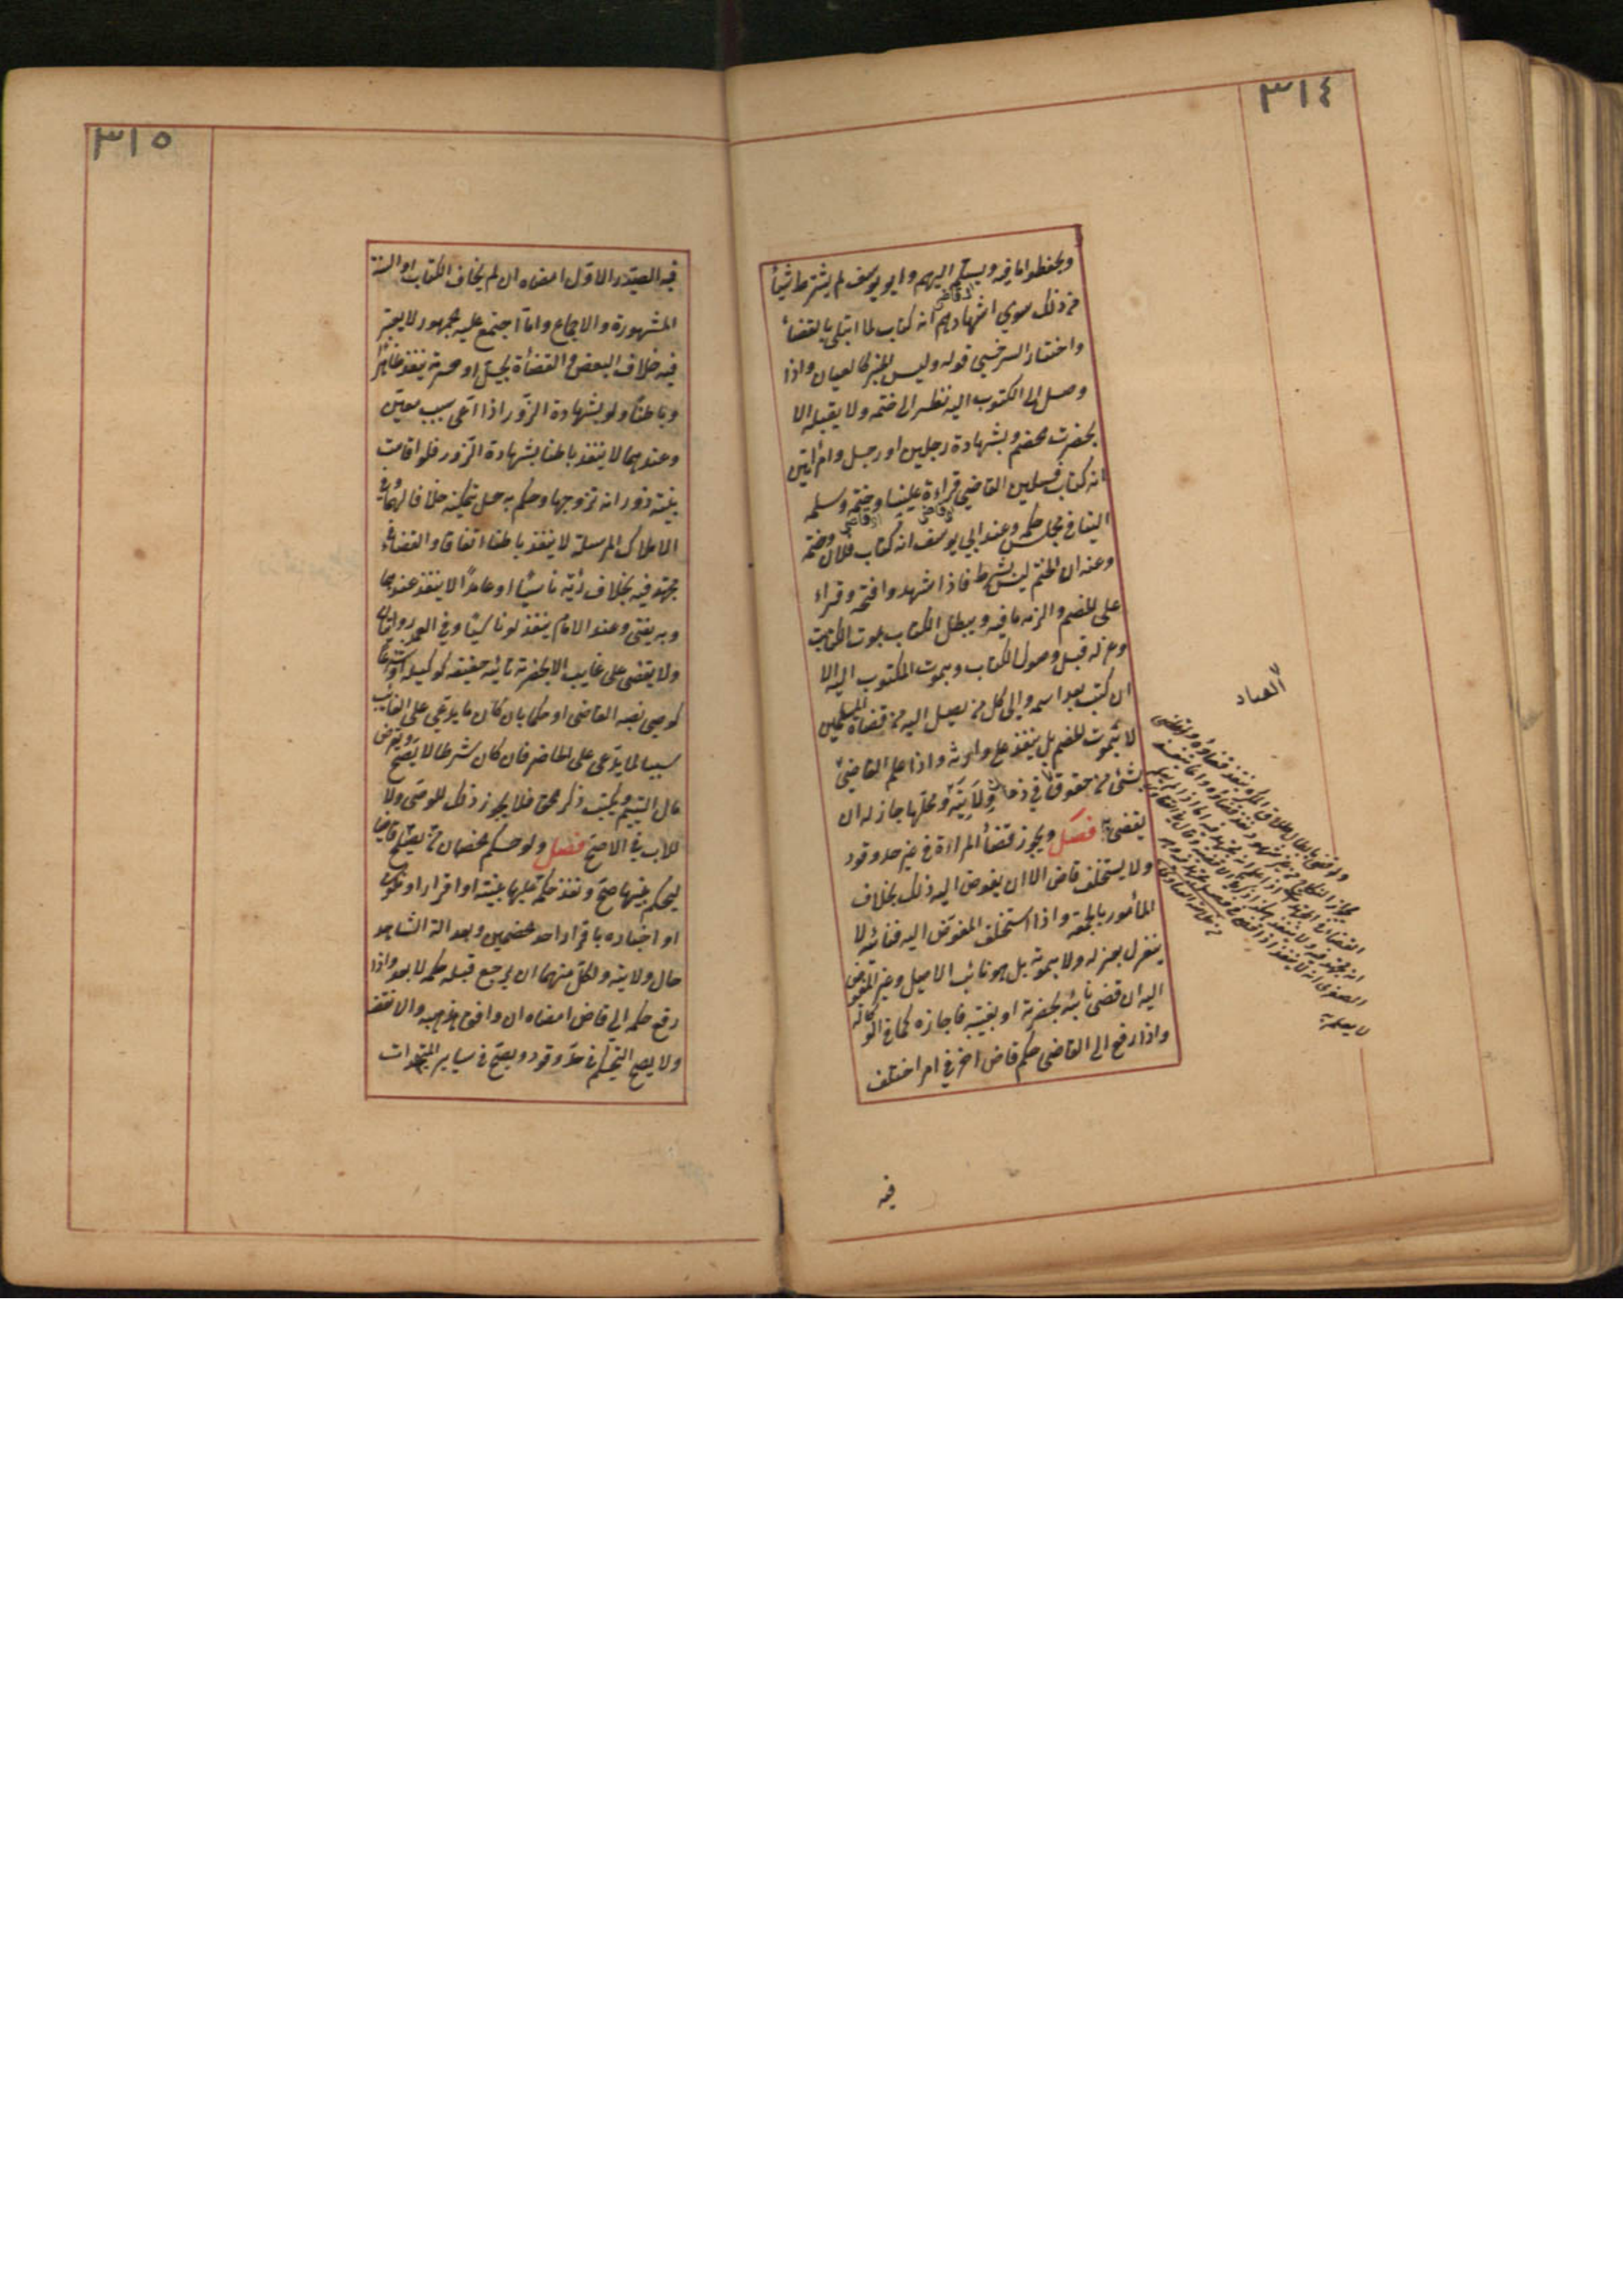 ٣١٤
ويحفظوا ما فيه ويسلم اليهم وابو يوسف لم يشترط شيأ
من ذلك سوي اشهادهم انه كتاب لما ابتلي بالقضاء
واختار السرخسي قوله وليس الخبر كالعيان واذا
وصل الى المكتوب اليه نظر الى ختمه ولا يقبله الا
بحضرت خصم وبشهادة رجلين او رجل وامرأتين
انه كتاب فلان القاضي قراءة علينا وختمه وسلمه
الينا في مجلس حكمه وعند ابي يوسف انه كتاب فلان وختمه
وعنه ان الختم ليس بشرط فاذا شهدوا فتحه وقراء
على الخصم والزمه ما فيه ويبطل الكتاب بموت الكاتب
وعزله قبل وصول الكتاب وبموت المكتوب اليه الا
ان كتب بعد اسمه والى كل من يصل اليه من قضاة المسلمين
لا بموت الخصم بل ينفذ على وارثه واذا علم القاضي
بشئ من حقوق في زمان ولايته ومحلها جاز له ان
يقضي به فصل ويجوز قضأ المراة في غير حد وقود
ولا يستخلف قاض الا ان يفوض اليه ذلك بخلاف
المأمور بالجمعه واذا استخلف المفوض اليه فنائبه لا
ينعزل بعزله ولا بموته بل هو نائب الاصيل وغير المفوض
اليه ان قضى نائبه بحضرته او بغيبته فاجازه كما في الوكالة
واذا رفع الى القاضي حكم قاض اخر في امر اختلف
فيه
العباد
٣١٥
فيه الصدر الاول امضاه ان لم يخالف الكتاب او السنة
المشهورة والاجماع وما اجتمع عليه الجمهور لا يعتبر
فيه خلاف البعض والقضأ بحل او حرمة ينفذ ظاهرا
وباطنا ولو بشهادة الزور اذا ادعى بسبب معين
وعندهما لا ينفذ باطنا بشهادة الزور فلو اقامت
بينة زور انه تزوجها وحكم به حل تمكينه خلافا لهما وفي
الاملاك المرسلة لا ينفذ باطنا اتفاقا والقضاء في
مجتهد فيه بخلاف رأيه ناسيا او عامدا لا ينفذ عندهما
وبه يفتي وعند الامام ينفذ لو ناسيا وفي العمد روايتان
ولا يقضى على غايب الا بحضرة نائبه حقيقة كوكيله او شرعا
كوصي نصبه القاضي او حكما بان كان ما يدعي على الغائب
سببا لما يدعى على الحاضر فان كان شرطا لا يصح ويقرض
مال اليتيم ويكتب ذكر الحق فلا يجوز ذلك للوصي ولا
للاب في الاصح فصل ولو حكم الخصمان من يصلح قاضيا
ليحكم بينهما صح ونفذ حكمه عليهما ببينة او اقرار او نكول
او اخباره باقرار احد الخصمين وبعدالة الشاهد
حال ولايته ولكل منهما ان يرجع قبل حكمه لا بعد واذا
رفع حكمه الي قاض امضاه ان وافق مذهبه والا نقضه
ولا يصح التحكيم في حد وقود ويصح في سياير المجتهدات